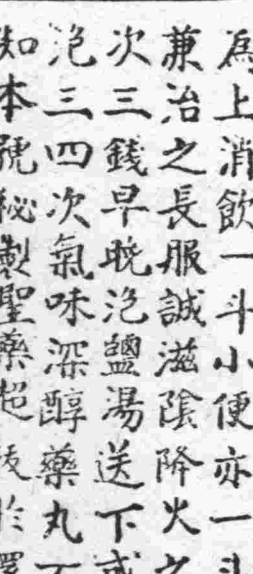 為上消飲一斗小便亦一斗
兼治之長服誠滋陰降火之
次三錢早晚泡鹽湯送下或
泡三四次氣味深醇藥丸
知本號秘製聖藥超